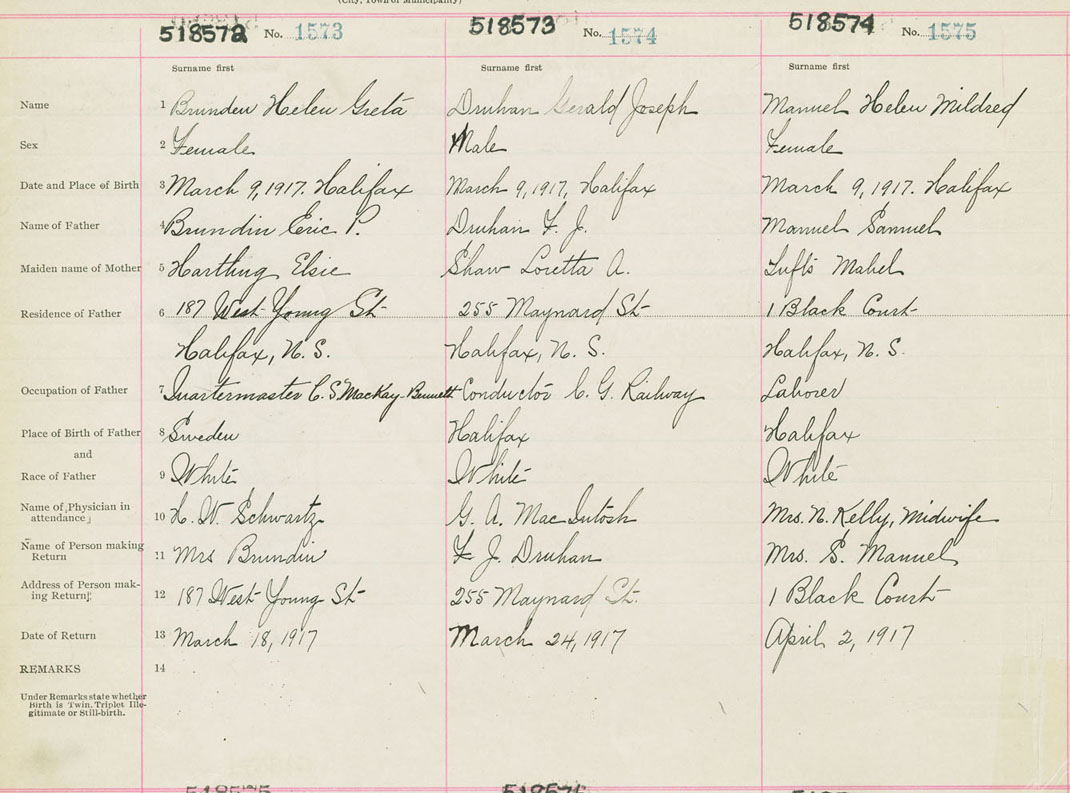 (City, Town or Municipality)
518572 No. 1573 518573 No. 1574 518574 No. 1575
Surname first Surname first Surname first
Name 1 Brunden Helen Greta Druhan Gerald Joseph Manuel Helen Mildred
Sex 2 Female Male Female
Date and Place of Birth 3 March 9, 1917. Halifax March 9, 1917, Halifax March 9, 1917. Halifax
Name of Father 4 Brundin Eric P. Druhan F. J. Manuel Samuel
Maiden name of Mother 5 Harthing Elsie Shaw Loretta A. Tufts Mabel
Residence of Father 6 187 West Young St 255 Maynard St 1 Black Court
Halifax, N. S. Halifax, N. S. Halifax, N. S.
Occupation of Father 7 Quartermaster C. S MacKay-Bennett Conductor C. G. Railway Laborer
Place of Birth of Father 8 Sweden Halifax Halifax
and
Race of Father 9 White White White
Name of Physician in
attendance 10 H. W. Schwartz G. A. MacIntosh Mrs. N. Kelly, Midwife
Name of Person making
Return 11 Mrs Brundin F. J. Druhan Mrs. S. Manuel
Address of Person mak-
ing Return 12 187 West Young St 255 Maynard St. 1 Black Court
Date of Return 13 March 18, 1917 March 24, 1917 April 2, 1917
REMARKS 14
Under Remarks state whether
Birth is Twin, Triplet Ille-
gitimate or Still-birth.